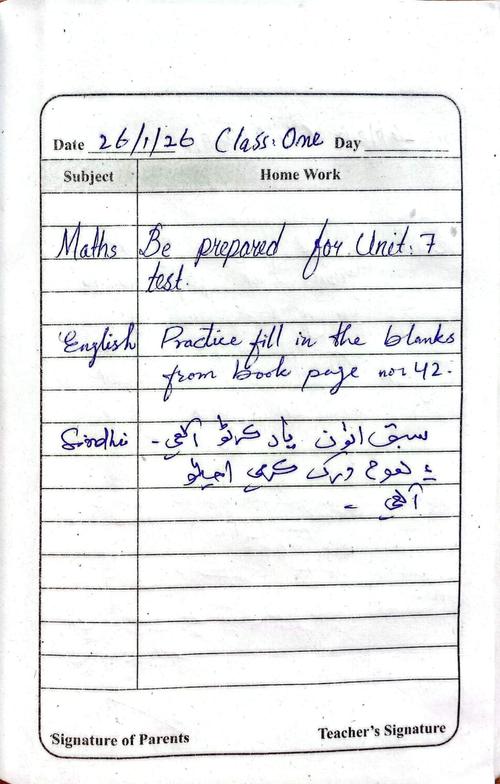 Date 26/1/26 Class: One Day
Subject Home Work
Maths Be prepared for Unit: 7
test.
English Practice fill in the blanks
from book page no: 42.
Sindhi سبق اٺون ياد ڪرڻو آهي -
۽ هوم ورڪ ڪري اچڻو
آهي -
Signature of Parents Teacher's Signature